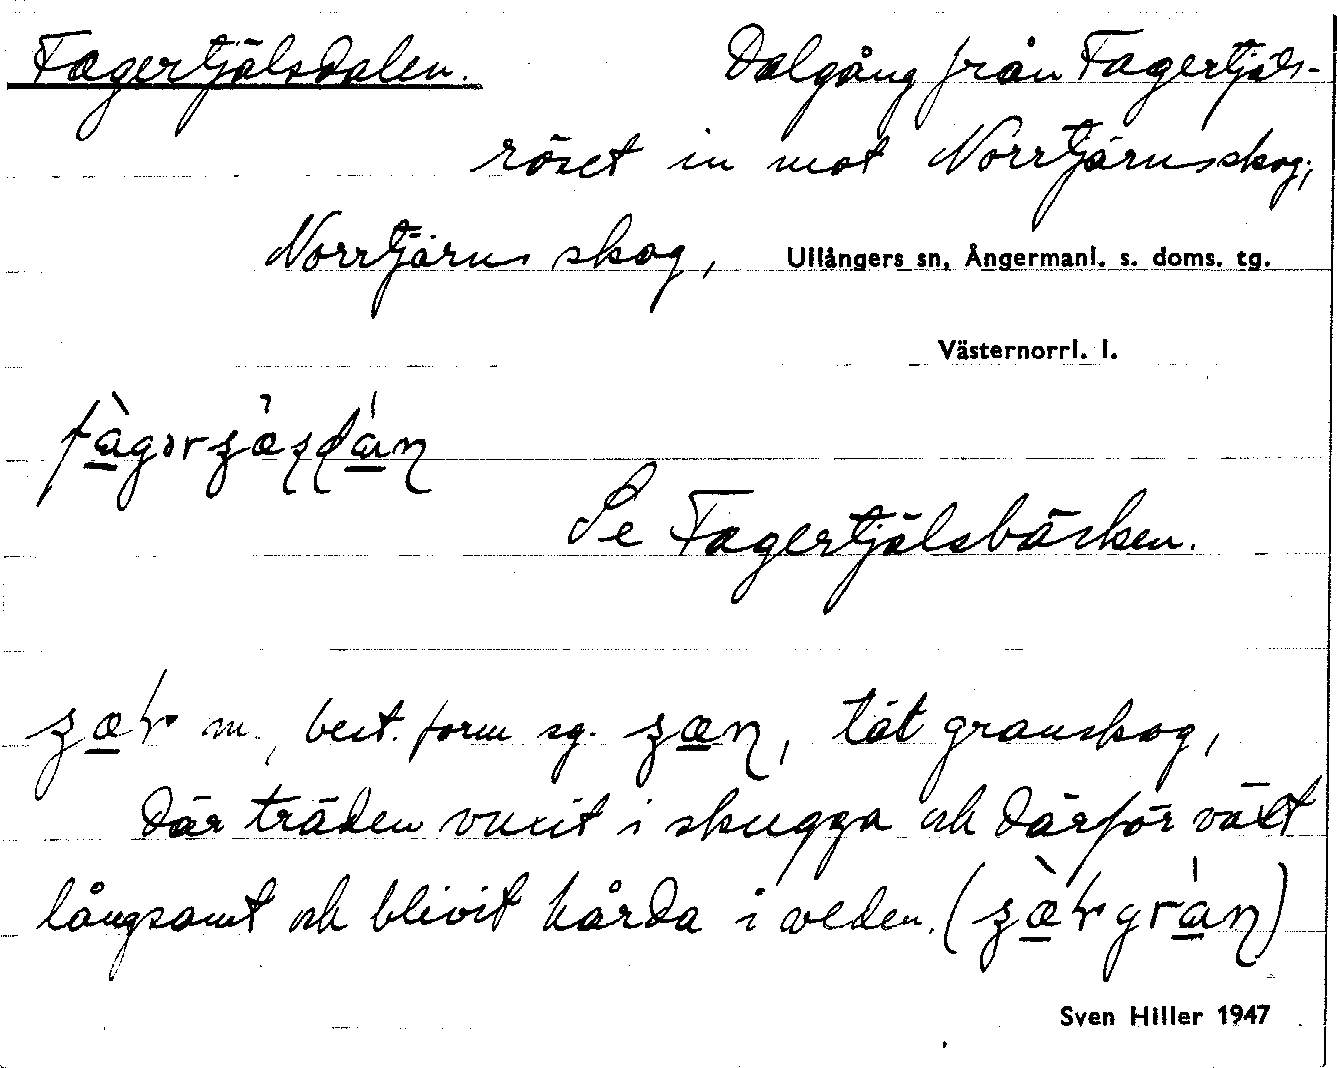 Fagertjälsdalen. Dalgång från Fagertjäls-
röset in mot Norrtjärnsskog;
Norrtjärns skog, Ullångers sn, Ångermanl. s. doms. tg.
Västernorrl. l.
Se Fagertjälsbäcken.
m., best. form sg. , tät granskog,
där träden vuxit i skugga och därför växt
långsamt och blivit hårda i veden.
Sven Hiller 1947